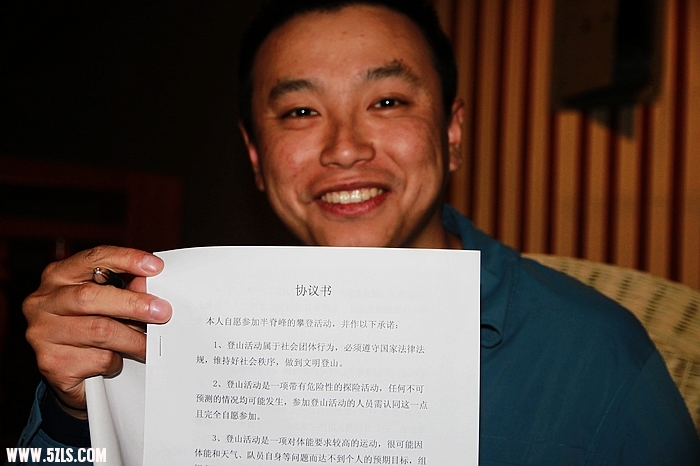 协议书
本人自愿参加半脊峰的攀登活动，并作以下承诺：
1、登山活动属于社会团体行为，必须遵守国家法律法
规，维持好社会秩序，做到文明登山。
2、登山活动是一项带有危险性的探险活动，任何不可
预测的情况均可能发生，参加登山活动的人员需认同这一点
且完全自愿参加。
3、登山活动是一项对体能要求较高的运动，很可能因
体能和天气、队员自身等问题而达不到个人的预期目标，组
WWW.52LS.COM